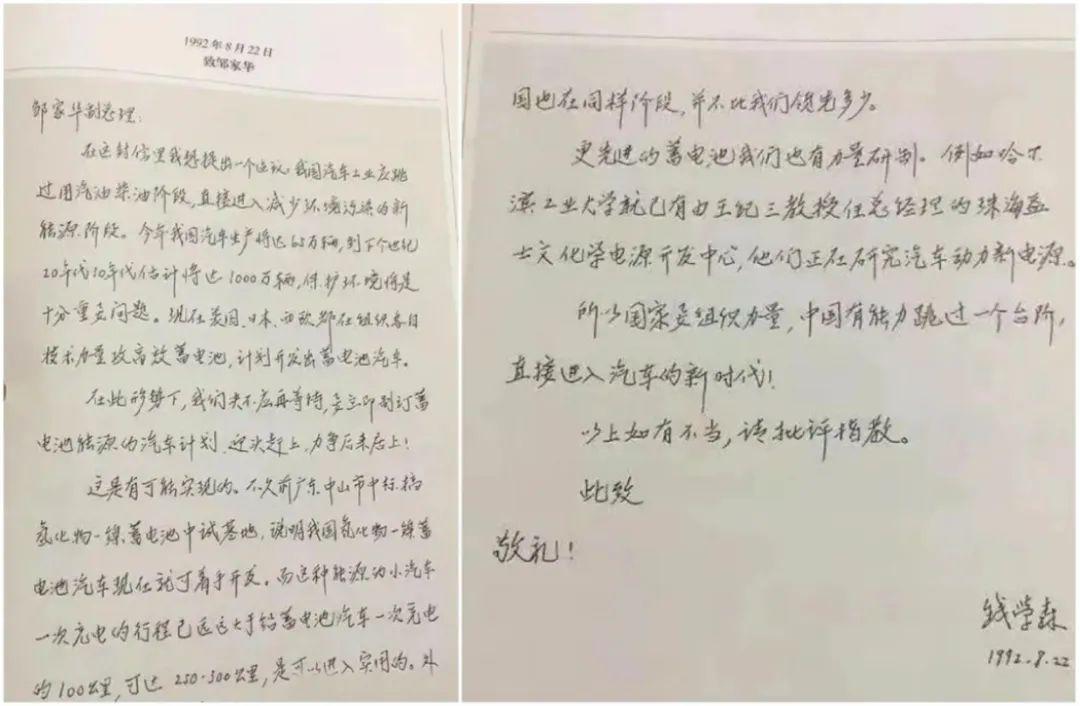 1992年8月22日
致邹家华
邹家华副总理:
在这封信里我想提出一个建议:我国汽车工业应跳
过用汽油柴油阶段,直接进入减少环境污染的新
能源阶段。今年我国汽车生产将达
20年代10年代估计将达1000万辆,保护环境将是
十分重要问题。现在美国、日本、西欧都在组织各自
技术力量攻高效蓄电池,计划开发出蓄电池汽车。
在此形势下,我们决不应再等待,要立即制订蓄
电池能源的汽车计划,迎头赶上,力争后来居上!
这是有可能实现的。不久前广东中山市中标搞
氢化物—镍蓄电池中试基地,说明我国氢化物—镍蓄
电池汽车现在就可着手开发。而这种能源的小汽车
一次充电的行程已远远大于铅蓄电池汽车一次充电
的100公里,可达250-300公里,是可以进入实用的。外
国也在同样阶段,并不比我们领先多少。
更先进的蓄电池我们也有力量研制。例如哈尔
滨工业大学就已有由王纪三教授任总经理的珠海益
士文化学电源开发中心,他们正在研究汽车动力新电源。
所以国家要组织力量,中国有能力跳过一个台阶,
直接进入汽车的新时代!
以上如有不当,请批评指教。
此致
敬礼!
钱学森
1992.8.22